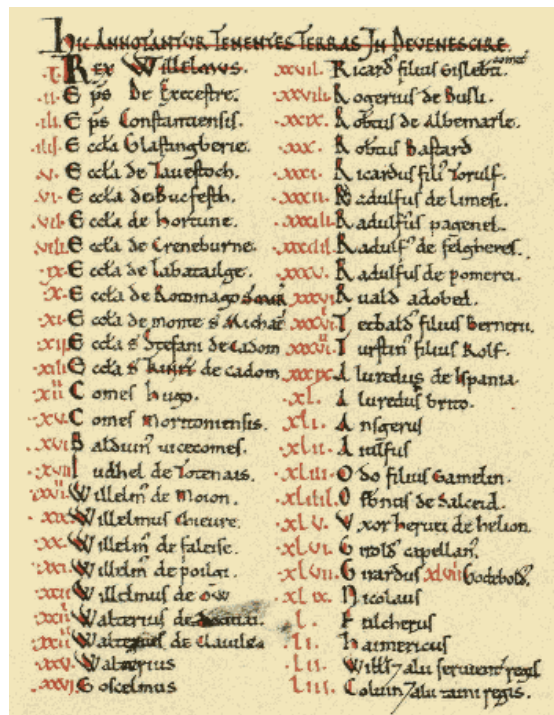 HIC ANNOTANTUR TENENTES TERRAS IN DEVENESCIRE.
.I. Rex Willelmus.
.II. Ep̄s De Execestre.
.III. Ep̄s Constantiensis.
.IIII. Eccła Glastingberie.
.V. Eccła de Tavestoch.
.VI. Eccła de Bucfesth.
.VII. Eccła de Hortune.
.VIII. Eccła de Creneburne.
.IX. Eccła de Labatailge.
.X. Eccła de Rotomago
.XI. Eccła de monte s̄ Michael
.XII. Eccła s̄ Stefani de Cadom
.XIII. Eccła s̄ de Cadom
.XIIII. Comes Hugo.
.XV. Comes Moritoniensis.
.XVI. Balduin' vicecomes.
.XVII. Iudhel de Totenais.
.XVIII. Willelm' de Moion.
.XIX. Willelmus Chievre.
.XX. Willelm' de faleise.
.XXI. Willelm' de poilgi.
.XXII. Willelmus de ow
.XXIII. Walterius de
.XXIIII. Walterius de Clavile
.XXV. Walterius
.XXVI. Goscelmus
.XXVII. Ricard' filius Gisleb'ti comet
.XXVIII. Rogerius de Busli.
.XXIX. Rob'tus de Albemarle.
.XXX. Rob'tus Bastard
.XXXI. Ricardus fili' Torulf.
.XXXII. Radulfus de Limesi.
.XXXIII. Radulfus pagenel.
.XXXIIII. Radulf' de felgheres.
.XXXV. Radulfus de pomerei.
.XXXVI. Ruald' adobed.
.XXXVII. Tetbald' filius Bernerii.
.XXXVIII. Turstin' filius Rolf.
.XXXIX. Aluredus de Ispania.
.XL. Aluredus brito.
.XLI. Ansgerus
.XLII. Aiulfus
.XLIII. Odo filius Gamelin.
.XLIIII. Osbernus de Salceid.
.XLV. Uxor Hervei de helion.
.XLVI. Girold' capellan'.
.XLVII. Girardus XLVIII Godebold'.
.XLIX. Nicolaus
.L. Fulcherus
.LI. Haimericus
.LII. Will's 7 alii servient' regis
.LIII. Coluin 7 alii taini regis.